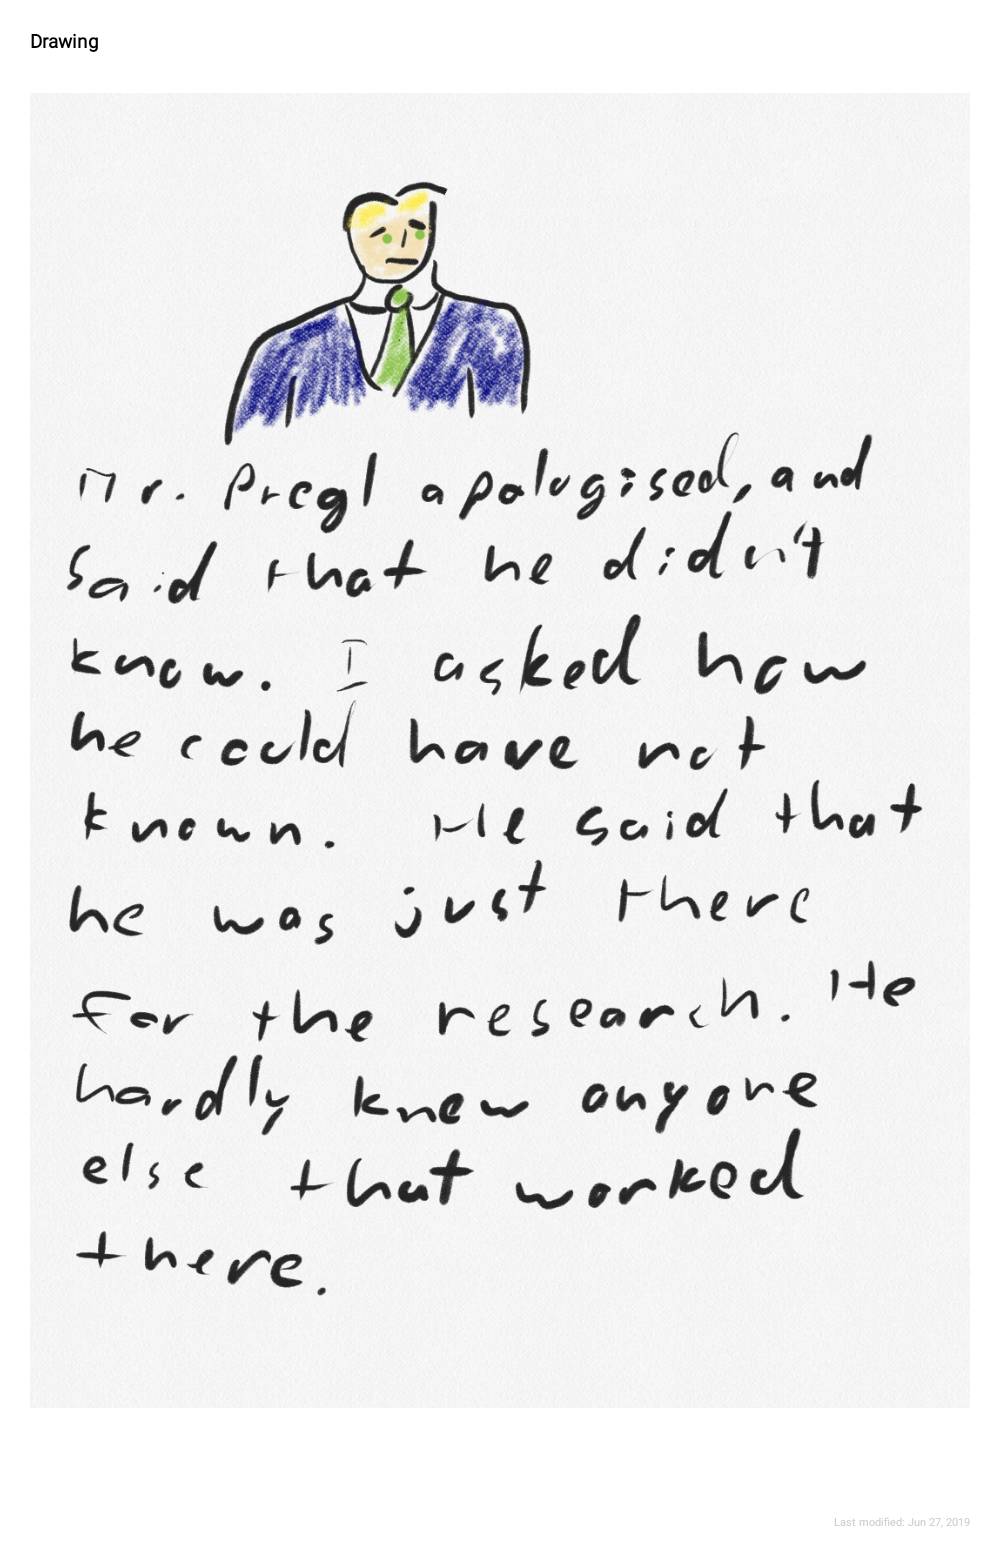 Drawing
Mr. Pregl apologised, and
said that he didn't
know. I asked how
he could have not
known. He said that
he was just there
for the research. He
hardly knew anyone
else that worked
there.
Last modified: Jun 27, 2019